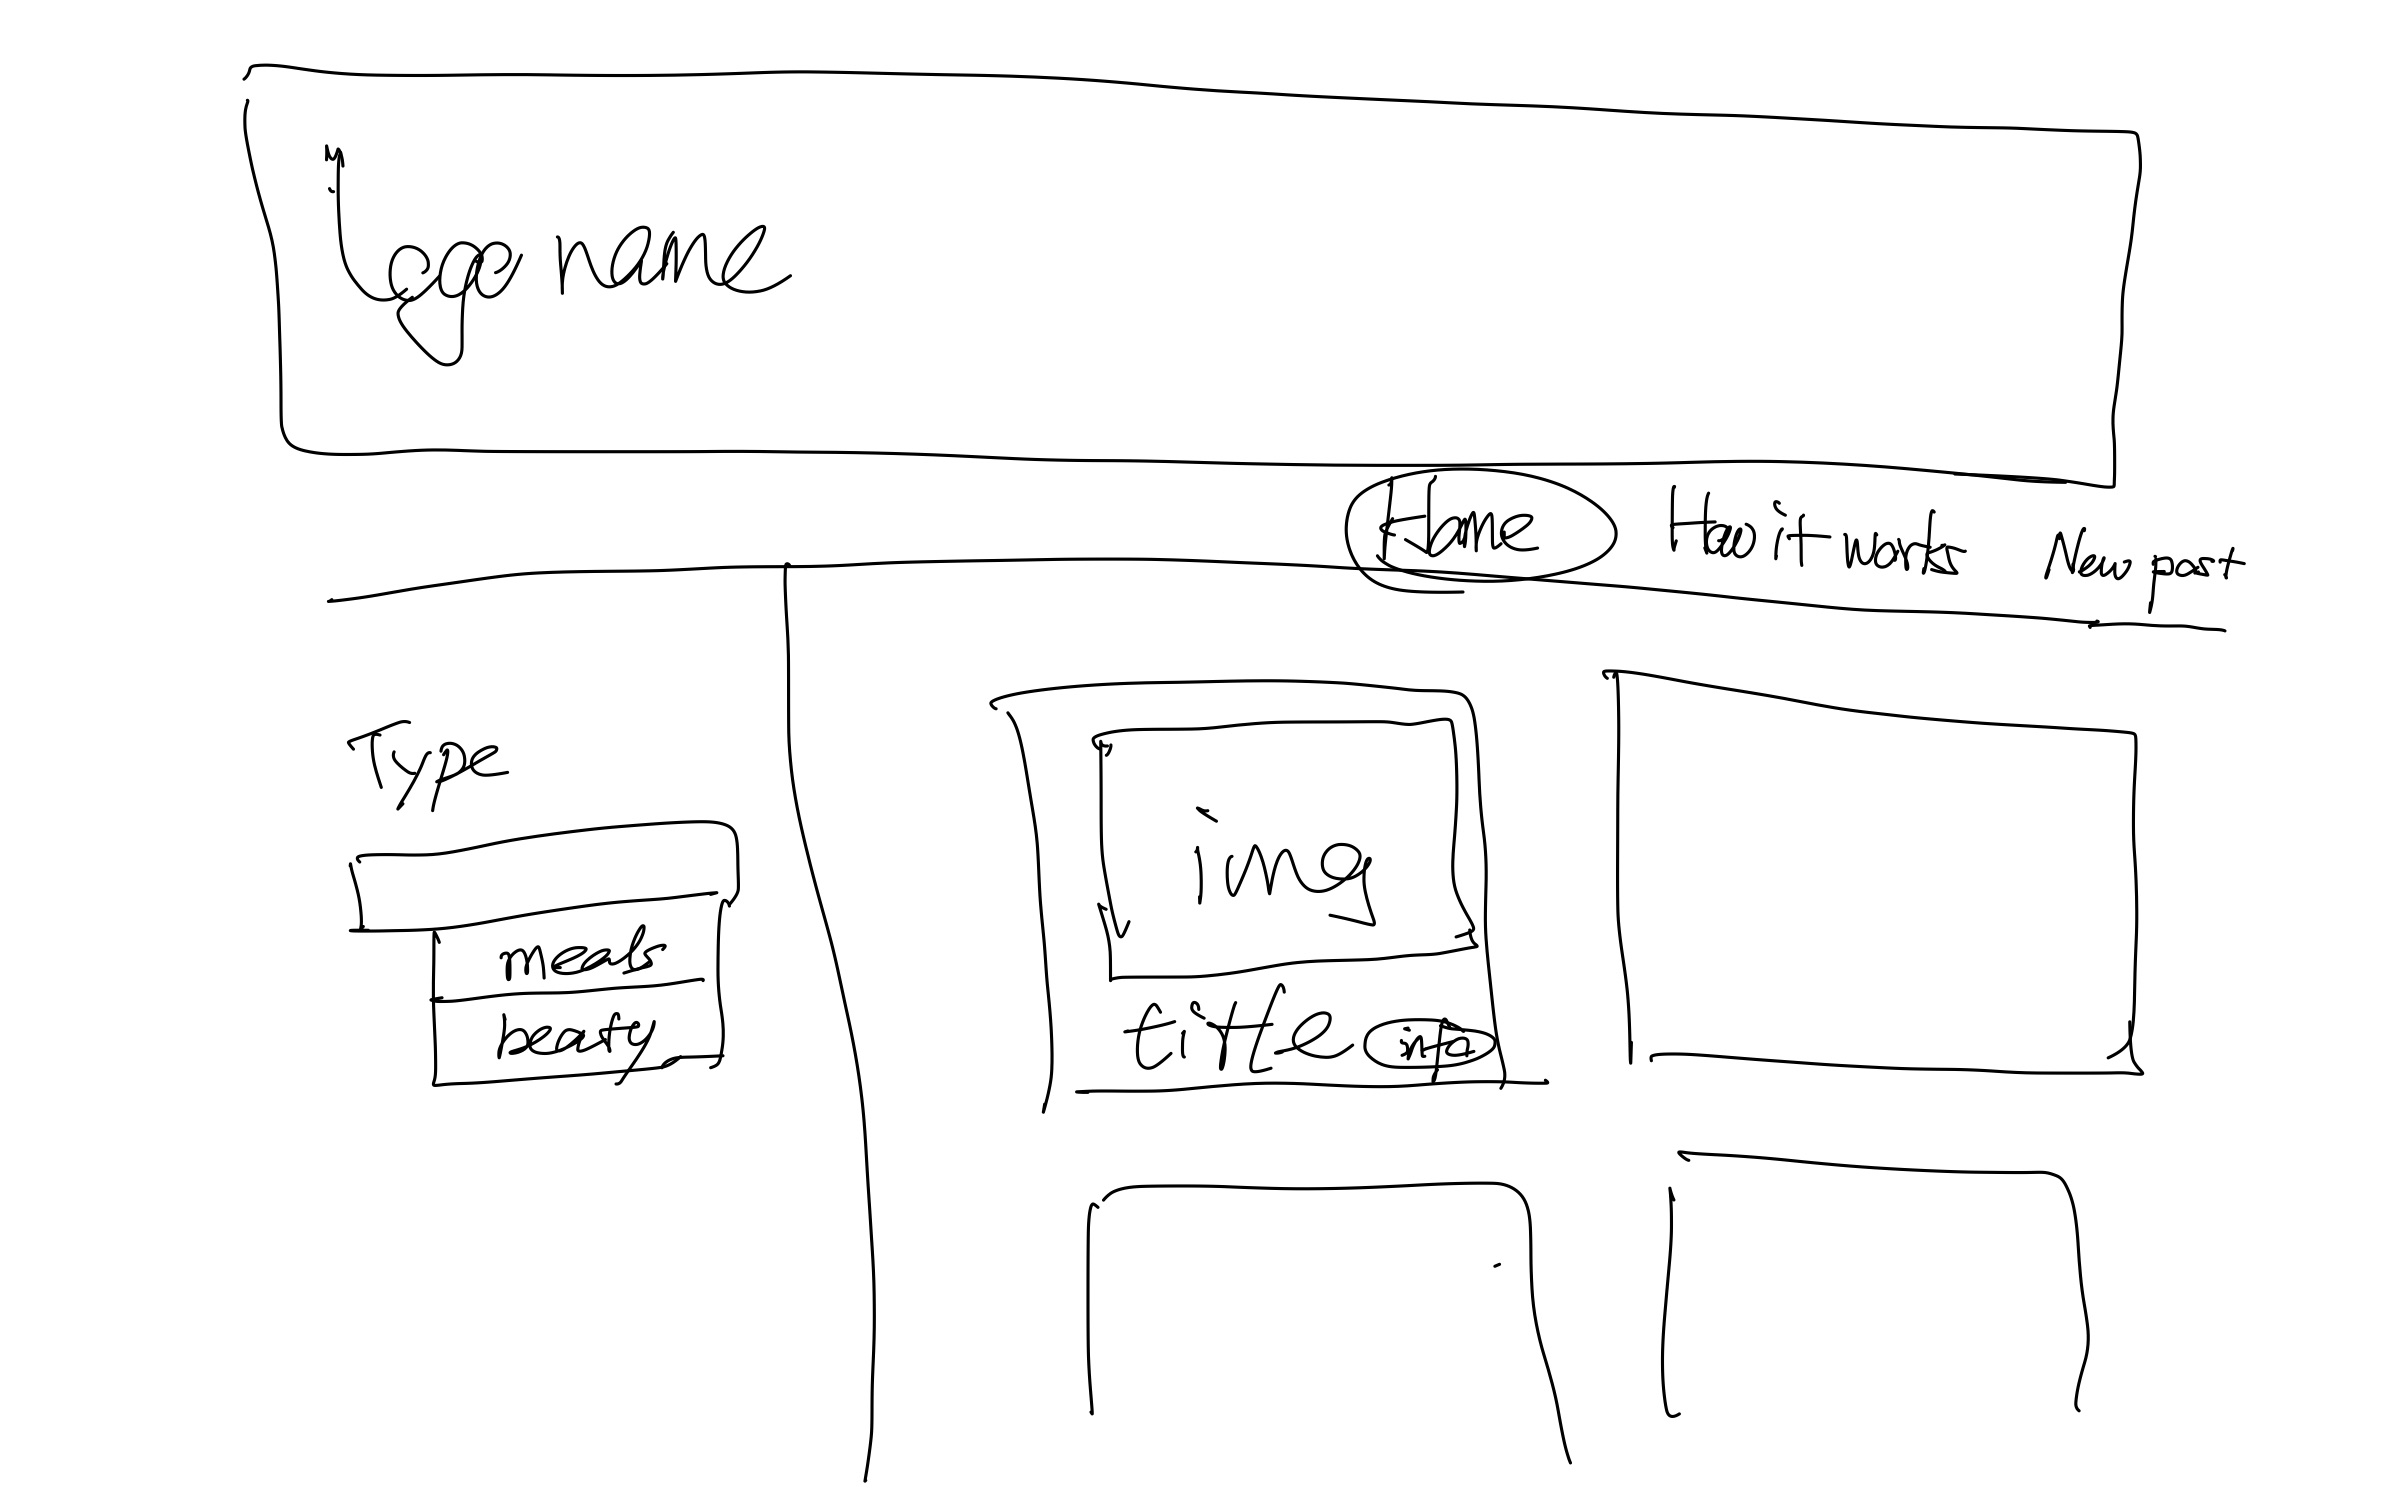 logo name
Home How it works New post
Type
meals
beauty
img
title info